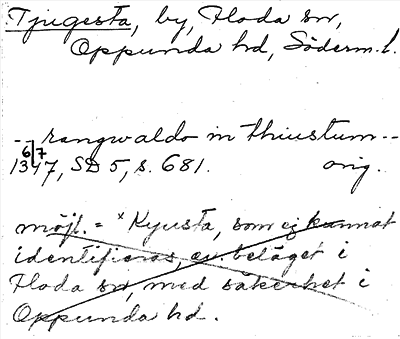 Tjugesta, by, Floda sn,
Oppunda hd, Söderm. l.
-- rangwaldo in thiustum --
6/7
1347, SD 5, s. 681. orig.
möjl. = ˣKyusta, som ej kunnat
identifieras, av beläget i
Floda sn, med säkerhet i
Oppunda hd.